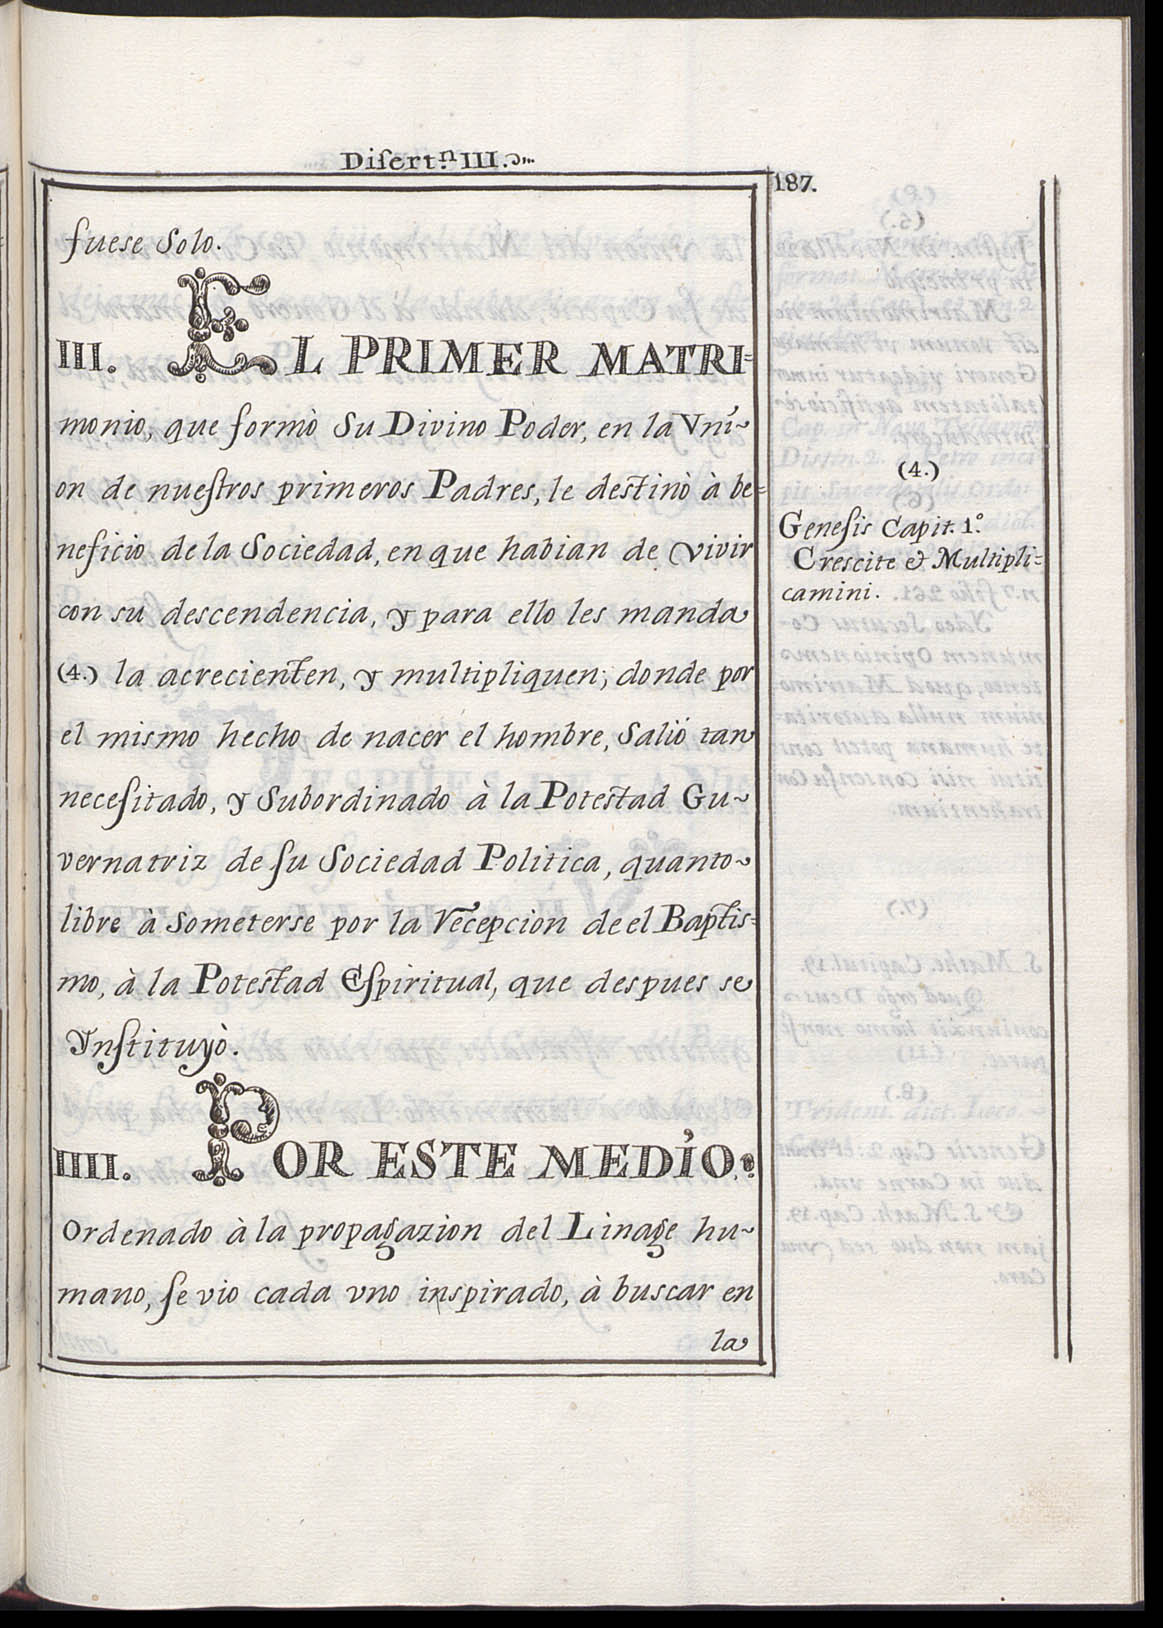 Disert.ⁿ III.
187.
fuese Solo.
III. EL PRIMER MATRI=
monio, que formò Su Divino Poder, en la Vni~
on de nuestros primeros Padres, le destinò à be=
neficio de la Sociedad, en que habian de Vivir
con su descendencia, y para ello les manda
(4.) la acrecienten, y multipliquen; donde por
el mismo hecho de nacer el hombre, Salió tan
necesitado, y Subordinado à la Potestad Gu~
vernatriz de su Sociedad Politica, quanto~
libre à Someterse por la Recepcion de el Baptis=
mo, à la Potestad Espiritual, que despues se
Ynstituyò.
IIII. POR ESTE MEDIO.
Ordenado à la propagazion del Linage hu~
mano, se vio cada vno inspirado, à buscar en
la
(4.)
Genesis Capit. 1.º
Crescite & Multipli=
camini.